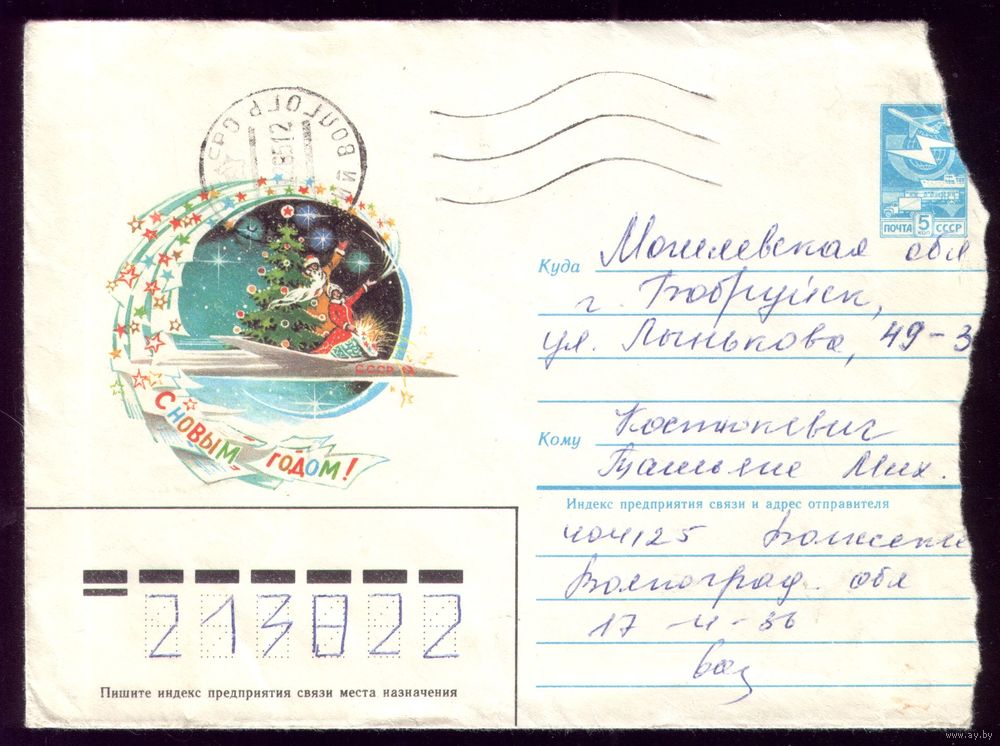 ВОЛГОГР
85 12
ПОЧТА 5 КОП СССР
Куда Могилевская обл
г. Бобруйск,
ул. Лынькова, 49-3
СССР
С НОВЫМ ГОДОМ!
Кому Костюкевич
Татьяне Мих.
Индекс предприятия связи и адрес отправителя
404125
Волгоград. обл
17-4-36
213822
Пишите индекс предприятия связи места назначения
www.ay.by